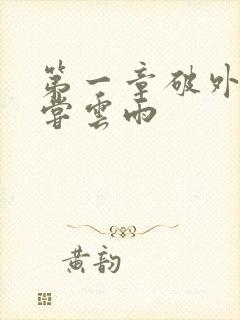 第一章破外
尝雲雨
黄韵